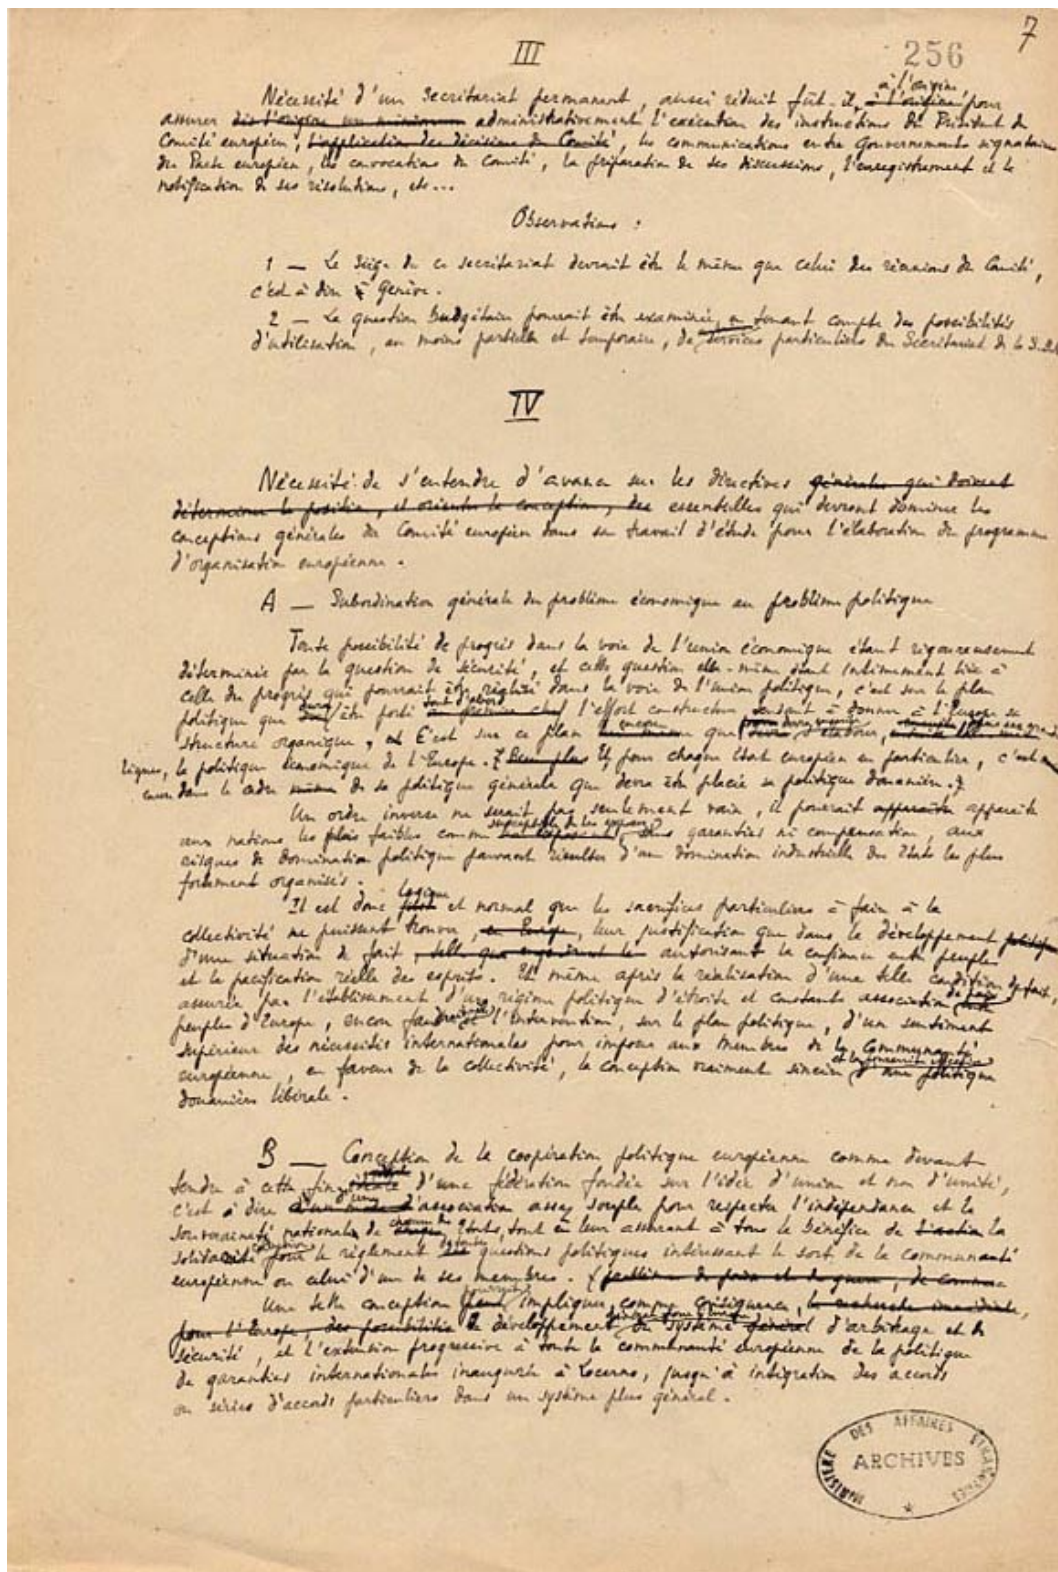 7
256
III
à l'origine,
Nécessité d'un secrétariat permanent, aussi réduit fût-il, à l'origine, pour
assurer dès l'origine un minimum administrativement l'exécution des instructions du Président du
Comité européen, l'application des décisions du Comité, les communications entre Gouvernements signataires
du Pacte européen, les convocations du Comité, la préparation de ses discussions, l'enregistrement et la
notification de ses résolutions, etc...
Observations :
1 — Le siège de ce secrétariat devrait être le même que celui des réunions du Comité,
c'est à dire à Genève.
2 — La question budgétaire pourrait être examinée, en tenant compte des possibilités
d'utilisation, au moins partielle et temporaire, de services particuliers du Secrétariat de la S.d.N
IV
Nécessité de s'entendre d'avance sur les directives générales qui doivent
déterminer la position, et orienter la conception, des essentielles qui devront dominer les
conceptions générales du Comité européen dans son travail d'étude pour l'élaboration du programme
d'organisation européenne.
A — Subordination générale du problème économique au problème politique
Toute possibilité de progrès dans la voie de l'union économique étant rigoureusement
déterminée par la question de sécurité, et cette question elle-même étant intimement liée à
celle du progrès qui pourrait être réalisé dans la voie de l'union politique, c'est sur le plan
politique que devra être porté tout d'abord l'effort constructeur tendant à donner à l'Europe sa
structure organique, et C'est sur ce plan encore que devra s'élaborer, dans ses grandes
lignes, la politique économique de l'Europe. Bien plus Et, pour chaque Etat européen en particulier, c'est
encore dans le cadre même de sa politique générale que devra être placée sa politique douanière.
Un ordre inverse ne serait pas seulement vain, il pourrait apparaître apparaître
susceptible de les exposer
aux nations les plus faibles comme sans garanties ni compensation, aux
risques de domination politique pouvant résulter d'une domination industrielle des Etats les plus
fortement organisés.
logique
Il est donc et normal que les sacrifices particuliers à faire à la
collectivité ne puissent trouver, en Europe, leur justification que dans le développement politique
d'une situation de fait, autorisant la confiance entre peuples
et la pacification réelle des esprits. Et même après la réalisation d'une telle condition de fait,
assurée par l'établissement d'un régime politique d'étroite et constante association de paix
peuples d'Europe, encore l'intervention, sur le plan politique, d'un sentiment
supérieur des nécessités internationales pour imposer aux membres de la Communauté
et la poursuite effective
européenne, en faveur de la collectivité, la conception vraiment sincère d'une politique
douanière libérale.
B — Conception de la coopération politique européenne comme devant
tendre à cette fin d'une fédération fondée sur l'idée d'union et non d'unité,
c'est à dire d'association assez souple pour respecter l'indépendance et la
souveraineté nationale de chacun des Etats, tout en leur assurant à tous le bénéfice de l'action la
solidarité pour le règlement questions politiques intéressant le sort de la communauté
européenne ou celui d'un de ses membres. (problème de paix et de guerre, de
Une telle conception impliquer, comme conséquence, la recherche immédiate,
pour l'Europe, des possibilités le développement du système général d'arbitrage et de
sécurité, et l'extension progressive à toute la communauté européenne de la politique
de garanties internationales inaugurée à Locarno, jusqu'à intégration des accords
ou séries d'accords particuliers dans un système plus général.
MINISTERE DES AFFAIRES ETRANGERES
ARCHIVES